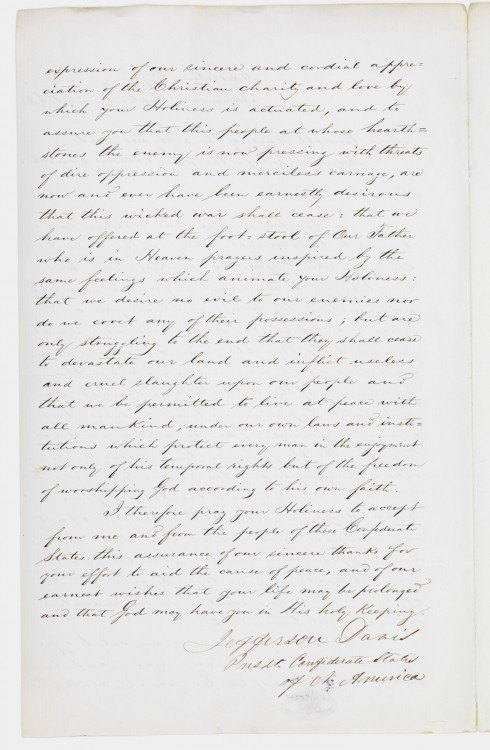 expression of our sincere and cordial appre=
ciation of the Christian charity and love by
which your Holiness is actuated, and to
assure you that this people at whose hearth=
stones the enemy is now pressing with threats
of dire oppression and merciless carnage, are
now and ever have been earnestly desirous
that this wicked war shall cease: that we
have offered at the foot=stool of Our Father
who is in Heaven prayers inspired by the
same feelings which animate your Holiness:
that we desire no evil to our enemies nor
do we covet any of their possessions; but are
only struggling to the end that they shall cease
to devastate our land and inflict useless
and cruel slaughter upon our people and
that we be permitted to live at peace with
all mankind, under our own laws and insti=
tutions which protect every man in the enjoyment
not only of his temporal rights but of the freedom
of worshipping God according to his own faith.
I therefore pray your Holiness to accept
from me and from the people of these Confederate
States this assurance of our sincere thanks for
your effort to aid the cause of peace, and of our
earnest wishes that your life may be prolonged
and that God may have you in His holy Keeping.
Jefferson Davis
Presdt. Confederate States
of America